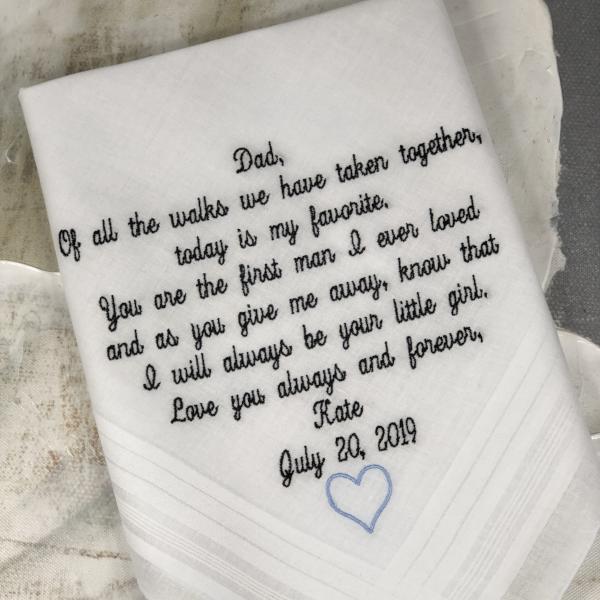 Dad,
Of all the walks we have taken together,
today is my favorite.
You are the first man I ever loved
and as you give me away, know that
I will always be your little girl.
Love you always and forever,
Kate
July 20, 2019